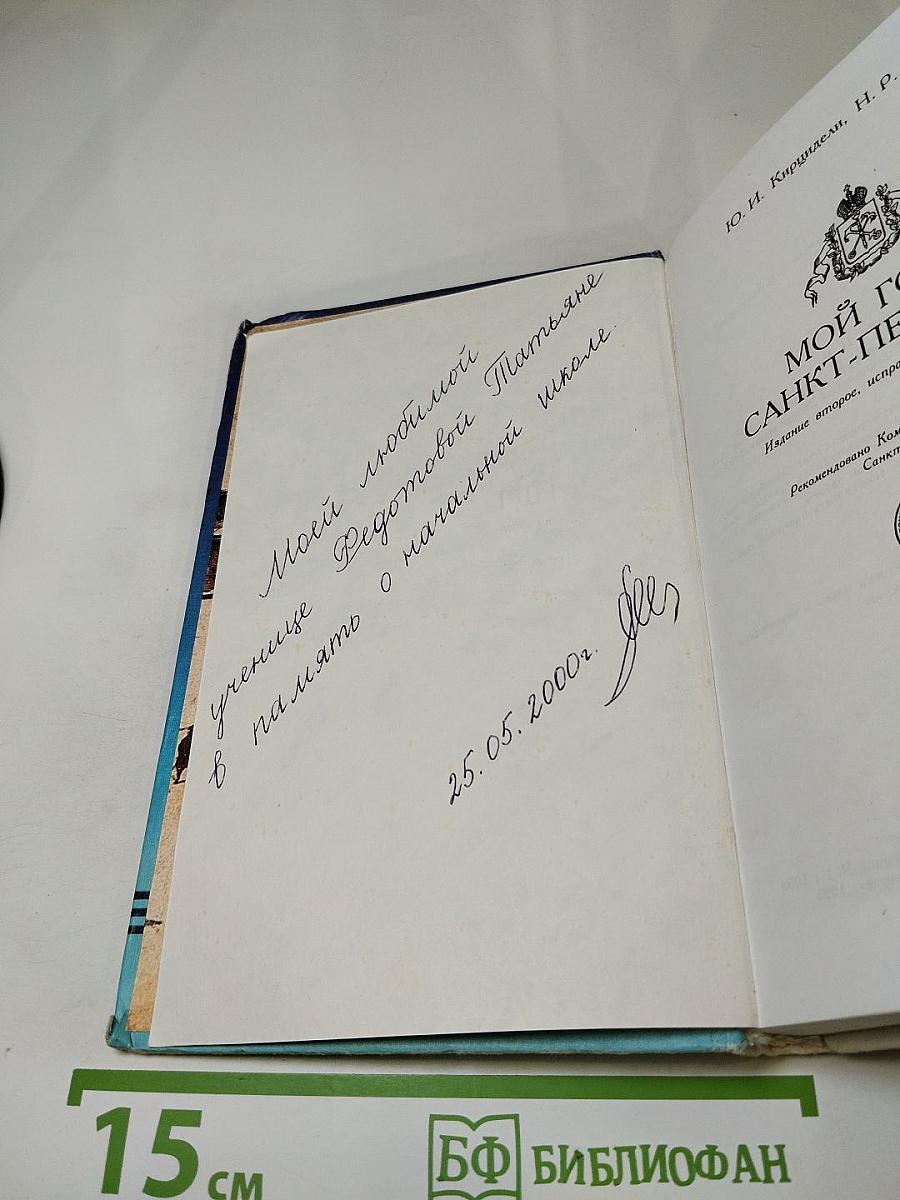 Моей любимой
ученице Федотовой Татьяне
в память о начальной школе.
25.05.2000г.
Ю. И. Кирцидели, Н. Р.
МОЙ
САНКТ-ПЕ
Издание второе, испра
Рекомендовано Ком
Санкт
15 см
БФ БИБЛИОФАН